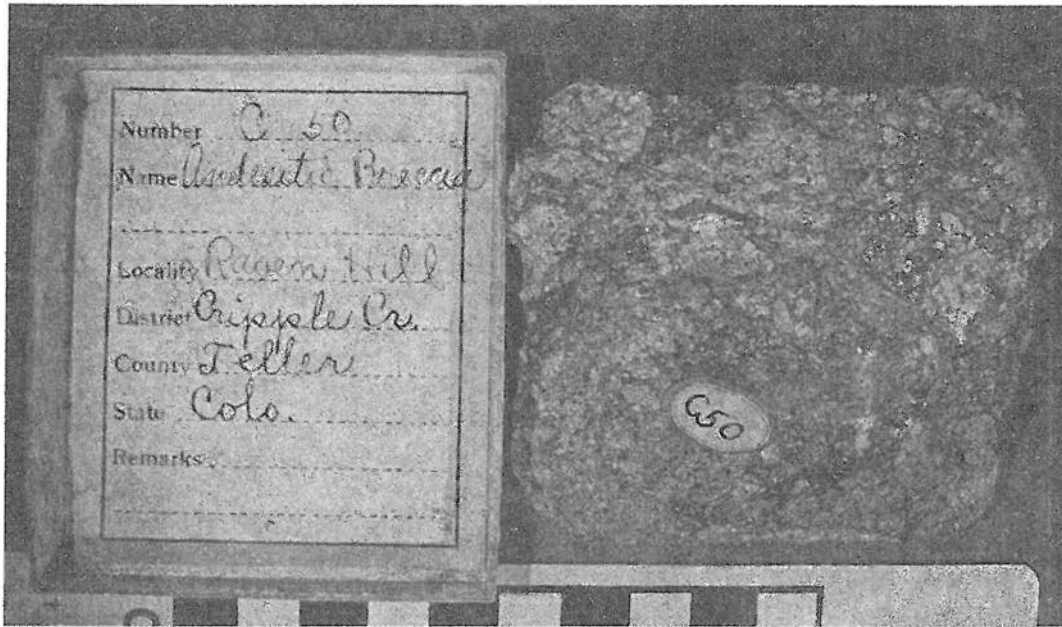 Number C 50
Name Andesitic Breccia
Locality Raven Hill
District Cripple Cr.
County Teller
State Colo.
Remarks
C50